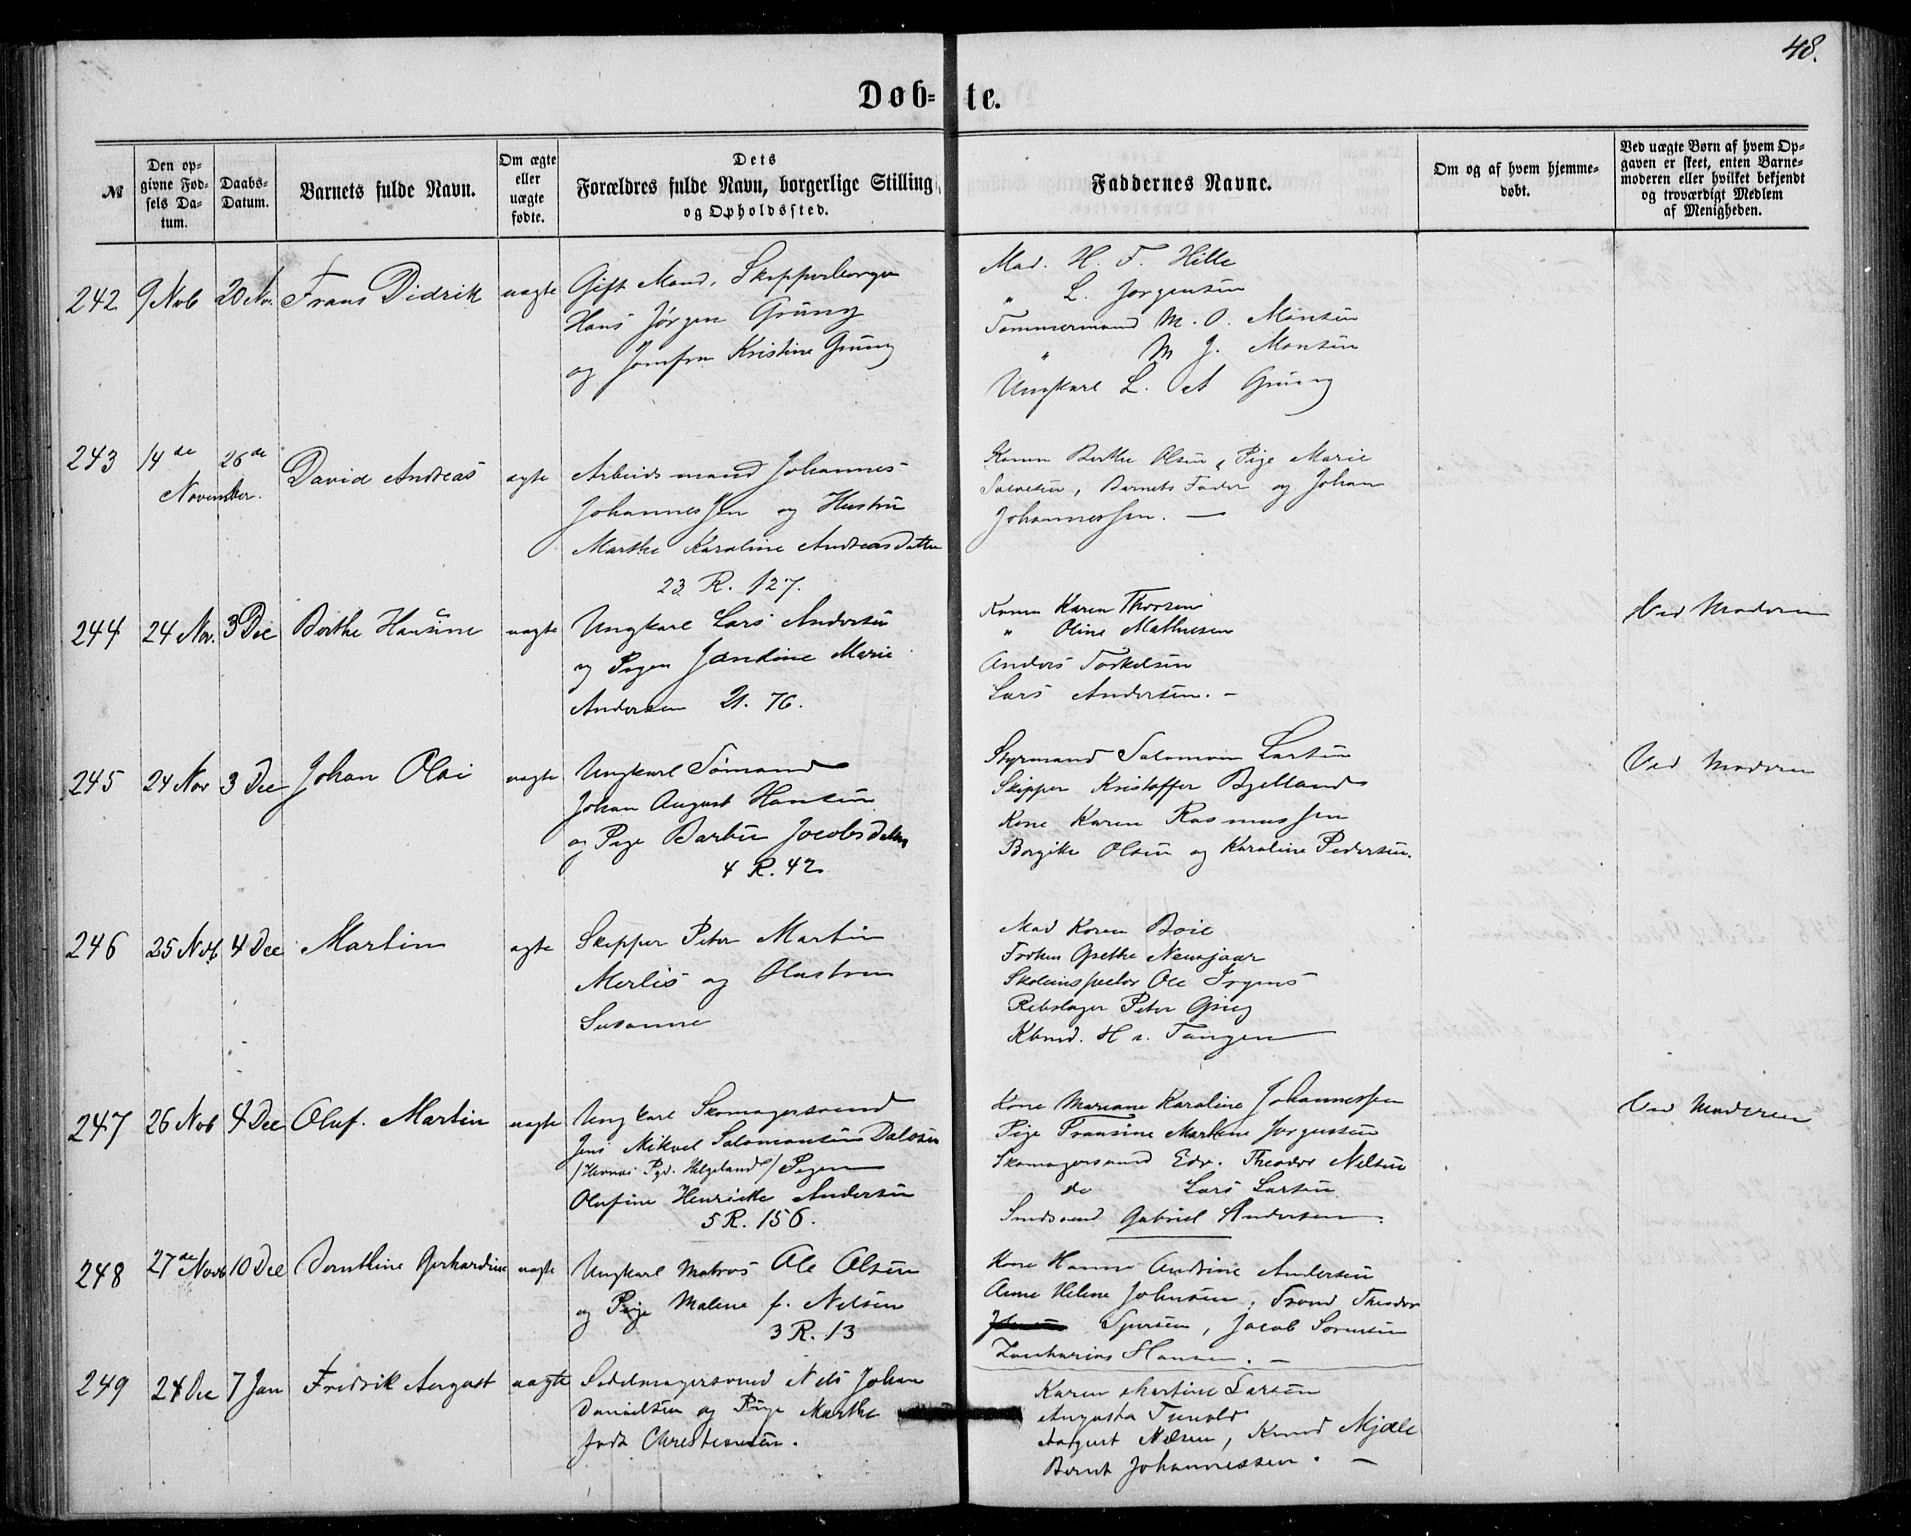 48.
Døb-te.
№
Den op-
givne Fød-
sels Da-
tum.
Daabs-
Datum.
Barnets fulde Navn.
Om ægte
eller
uægte
fødte.
Dets
Forældres fulde Navn, borgerlige Stilling
og Opholdssted.
Faddernes Navne.
Om og af hvem hjemme-
døbt.
Ved uægte Børn af hvem Op-
gaven er skeet, enten Barne-
moderen eller hvilket bekjendt
og troværdigt Medlem
af Menigheden.
242 9 Nob 20 Nov. Frans Didrik uægte
Gift Mand, Skipperborger
Hans Jørgen Grüng
og Jomfru Kristine Grung
Mad. H. F. Hille
" L. Jørgensen
Tømmermand M. O. Monsen
" M J. Monsen
Ungkarl L. A Grung
243 14de 26de David Andreas ægte
November.
Arbeidsmand Johannes
Johannessen og Hustru
Marthe Karoline Andreasdatter
23 R. 127.
Konen Berthe Olsen, Pige Marie
Salvesen, Barnets Fader og Johan
Johannessen. —
244 24 Nov. 3 Dec Berthe Hansine uægte
Ungkarl Lars Andersen
og Pigen Jandine Marie
Andersen 21. 76.
Konen Karen Thorsen
" Oline Mathiesen
Anders Torkelsen
Lars Andersen. —
Ved Moderen
245 24 Nov 3 Dec Johan Olai uægte
Ungkarl Sømand
Johan August Hansen
og Pige Barbro Jacobsdatter
4 R. 42
Styrmand Salomon Larsen
Skipper Kristoffer Bjelland
Kone Karen Rasmussen
Borgithe Olsen og Karoline Pedersen.
Ved Moderen
246 25 Nob 4 Dec Martin ægte
Skipper Peter Martin
Merlis og Hustru
Susanne
Mad Karen Boie
Frøken Grethe Neuajaar
Skoleinspector Ole Irgens
Rebslager Peter Grieg
Kbmd. H Tangen
247 26 Nob 4 Dec Oluf Martin uægte
Ungkarl Skomagersvend
Jens Mikael Salomonsen Dalosen
/ Pgd. Helgeland / Pigen
Olufine Henrikke Andersen
5 R. 156.
Kone Mariane Karoline Johannessen
Pige Fransine Marlene Jørgensen
Skomagersvend Edv. Theodor Nilsen
do Lars Larsen
Smedsvend Gabriel Andersen.
Ved Moderen
248 27de Novb 10 Dec Bernthine Gerhardine uægte
Ungkarl Matros Ole Olsen
og Pige Malene f. Nilsen
3 R. 13
Kone Hanne Andrine Andersen
Anne Helene Johnsen, Trond Theodor
Sjursen, Jacob Sørensen
Zacharias Hansen. —
249 24 Dec 7 Jan Fredrik August uægte
Sadelmagersvend Nils Johan
Danielsen og Pige Marthe
født Christensen.
Karen Martine Larsen
Augusta Tunold
August Nilsen, Knud Mjøle
Bernt Johannessen. —